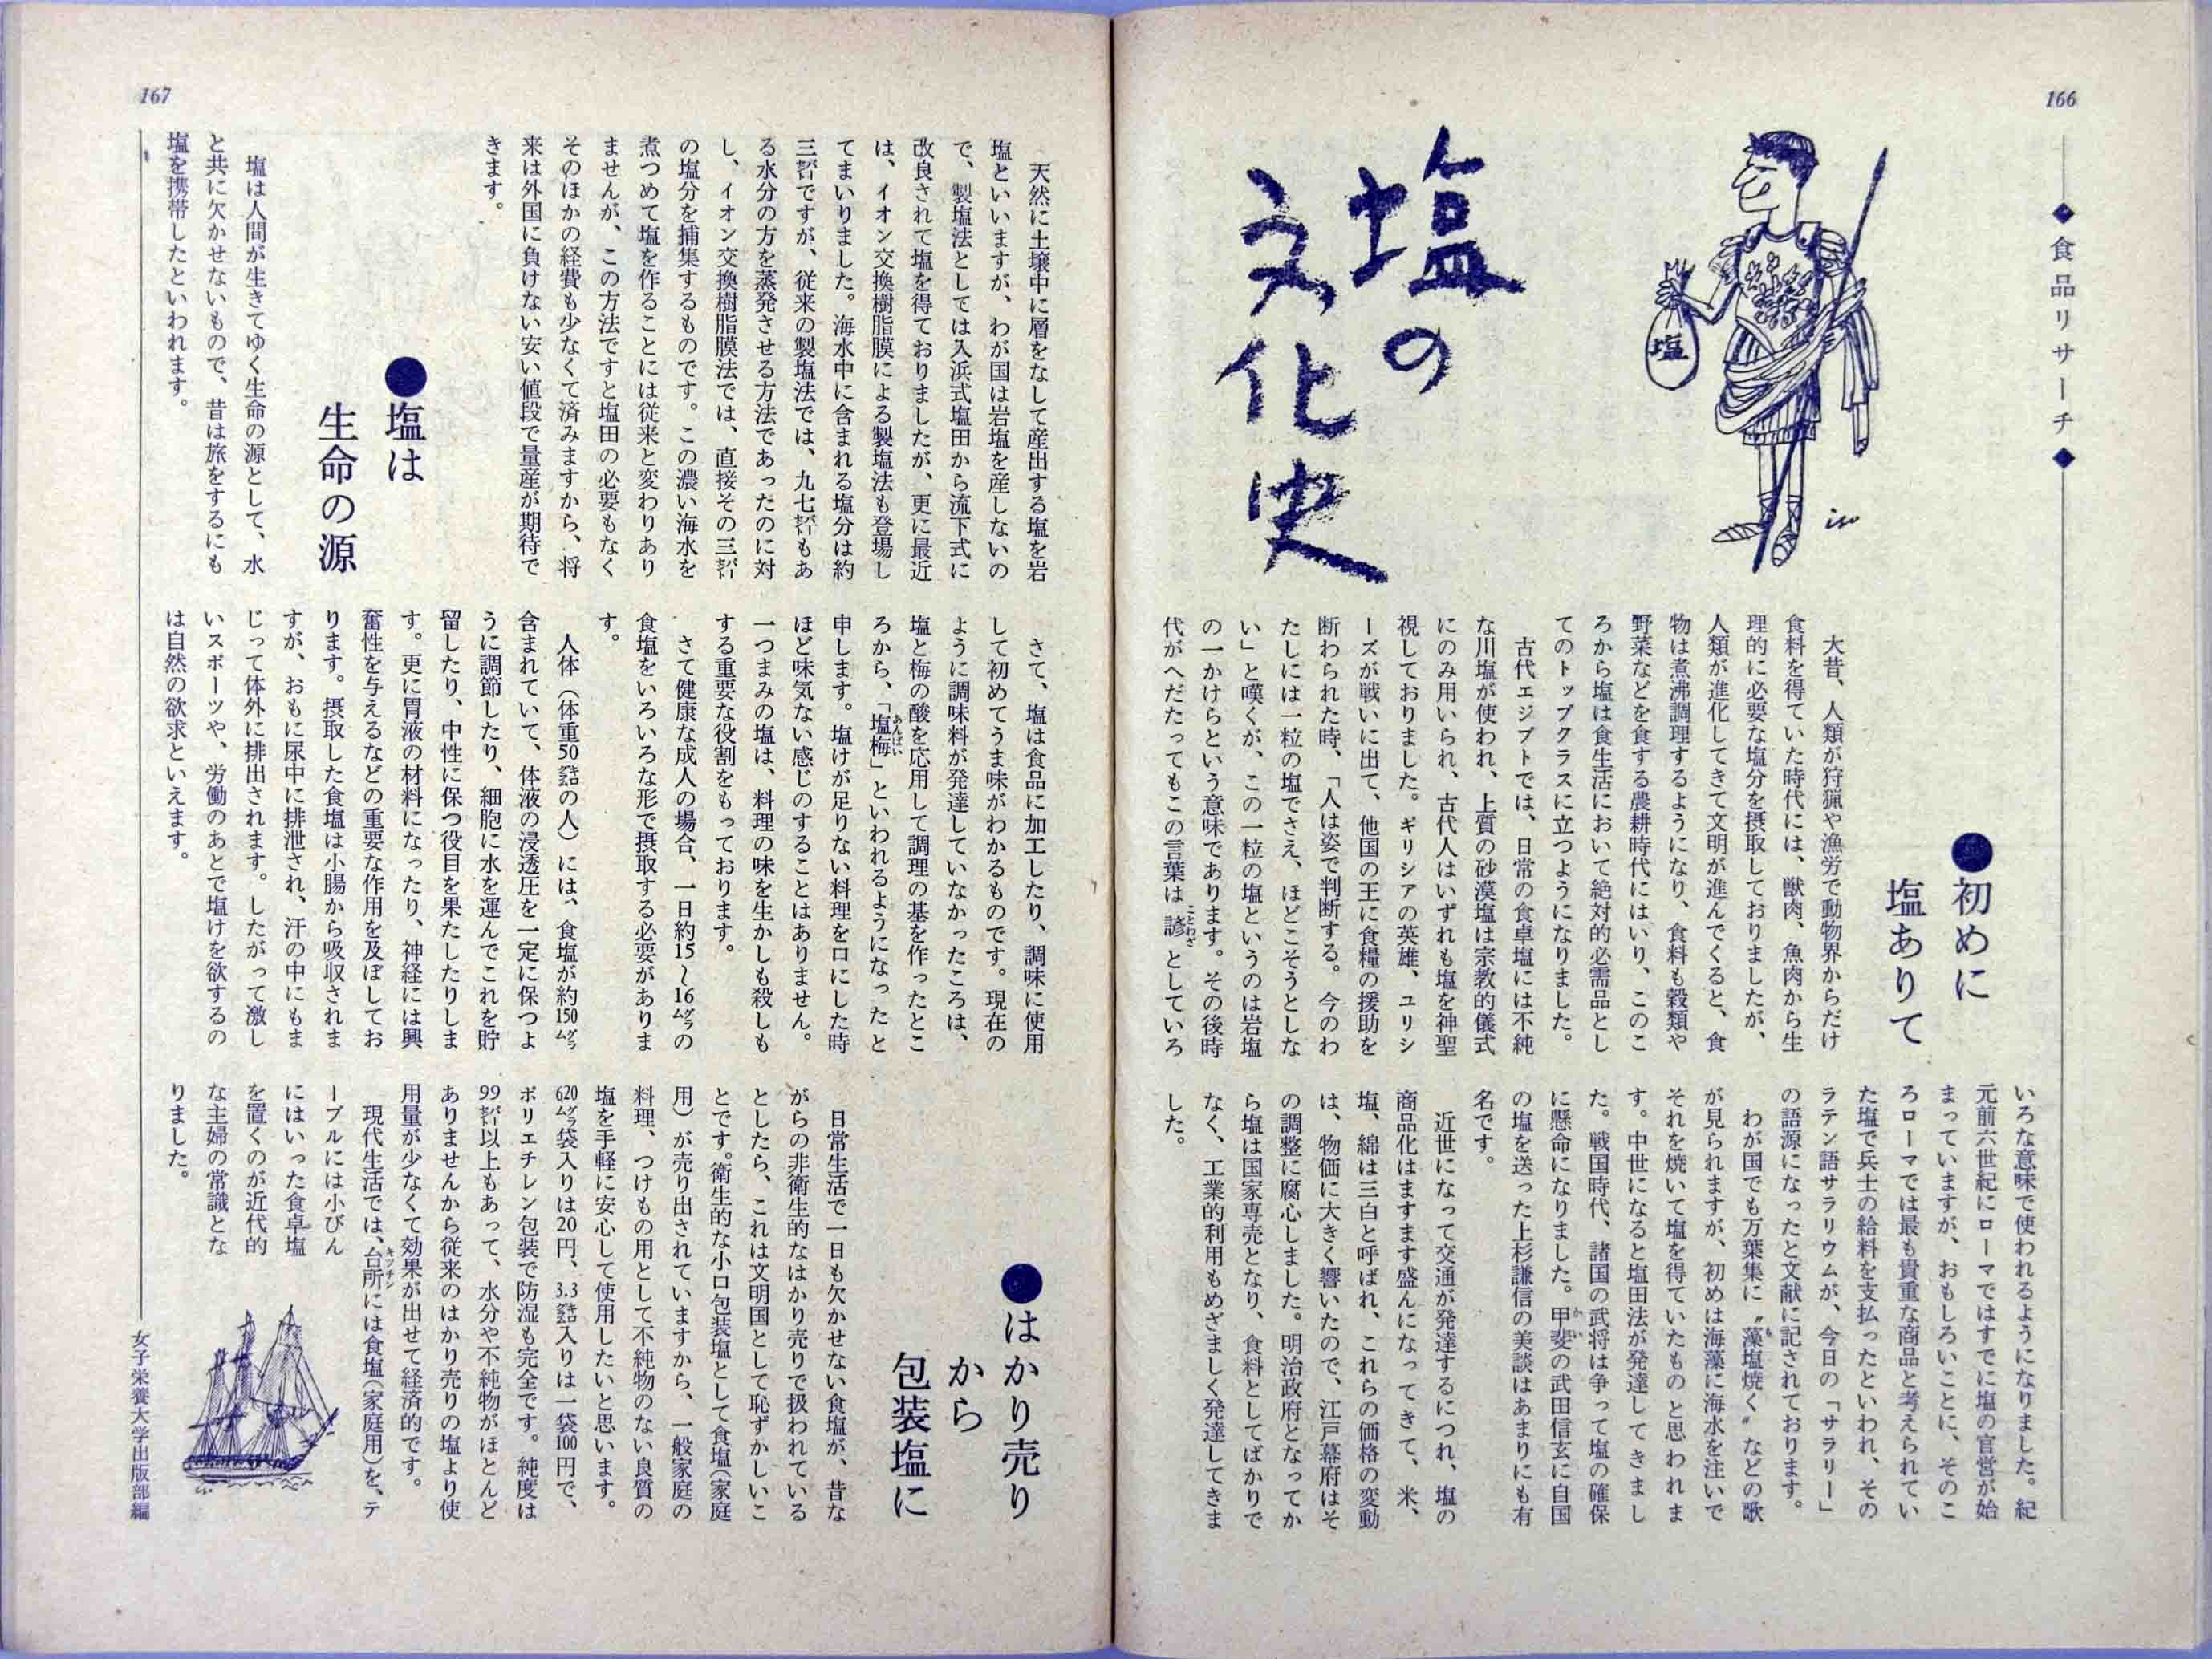 166
◆食品リサーチ◆
塩
iw
塩の
文化史
●初めに
塩ありて
大昔、人類が狩猟や漁労で動物界からだけ
食料を得ていた時代には、獣肉、魚肉から生
理的に必要な塩分を摂取しておりましたが、
人類が進化してきて文明が進んでくると、食
物は煮沸調理するようになり、食料も穀類や
野菜などを食する農耕時代にはいり、このこ
ろから塩は食生活において絶対的必需品とし
てのトップクラスに立つようになりました。
古代エジプトでは、日常の食卓塩には不純
な川塩が使われ、上質の砂漠塩は宗教的儀式
にのみ用いられ、古代人はいずれも塩を神聖
視しておりました。ギリシアの英雄、ユリシ
ーズが戦いに出て、他国の王に食糧の援助を
断わられた時、「人は姿で判断する。今のわ
たしには一粒の塩でさえ、ほどこそうとしな
い」と嘆くが、この一粒の塩というのは岩塩
の一かけらという意味であります。その後時
代がへだたってもこの言葉は諺(ことわざ)としていろ
いろな意味で使われるようになりました。紀
元前六世紀にローマではすでに塩の官営が始
まっていますが、おもしろいことに、そのこ
ろローマでは最も貴重な商品と考えられてい
た塩で兵士の給料を支払ったといわれ、その
ラテン語サラリウムが、今日の「サラリー」
の語源になったと文献に記されております。
わが国でも万葉集に〝藻(も)塩焼く〟などの歌
が見られますが、初めは海藻に海水を注いで
それを焼いて塩を得ていたものと思われま
す。中世になると塩田法が発達してきまし
た。戦国時代、諸国の武将は争って塩の確保
に懸命になりました。甲斐(かい)の武田信玄に自国
の塩を送った上杉謙信の美談はあまりにも有
名です。
近世になって交通が発達するにつれ、塩の
商品化はますます盛んになってきて、米、
塩、綿は三白と呼ばれ、これらの価格の変動
は、物価に大きく響いたので、江戸幕府はそ
の調整に腐心しました。明治政府となってか
ら塩は国家専売となり、食料としてばかりで
なく、工業的利用もめざましく発達してきま
した。
167
天然に土壌中に層をなして産出する塩を岩
塩といいますが、わが国は岩塩を産しないの
で、製塩法としては入浜式塩田から流下式に
改良されて塩を得ておりましたが、更に最近
は、イオン交換樹脂膜による製塩法も登場し
てまいりました。海水中に含まれる塩分は約
三㌫ですが、従来の製塩法では、九七㌫もあ
る水分の方を蒸発させる方法であったのに対
し、イオン交換樹脂膜法では、直接その三㌫
の塩分を捕集するものです。この濃い海水を
煮つめて塩を作ることには従来と変わりあり
ませんが、この方法ですと塩田の必要もなく
そのほかの経費も少なくて済みますから、将
来は外国に負けない安い値段で量産が期待で
きます。
●塩は
生命の源
塩は人間が生きてゆく生命の源として、水
と共に欠かせないもので、昔は旅をするにも
塩を携帯したといわれます。
さて、塩は食品に加工したり、調味に使用
して初めてうま味がわかるものです。現在の
ように調味料が発達していなかったころは、
塩と梅の酸を応用して調理の基を作ったとこ
ろから、「塩梅(あんばい)」といわれるようになったと
申します。塩けが足りない料理を口にした時
ほど味気ない感じのすることはありません。
一つまみの塩は、料理の味を生かしも殺しも
する重要な役割をもっております。
さて健康な成人の場合、一日約15～16㌘の
食塩をいろいろな形で摂取する必要がありま
す。
人体（体重50㌔の人）には、食塩が約150㌘
含まれていて、体液の浸透圧を一定に保つよ
うに調節したり、細胞に水を運んでこれを貯
留したり、中性に保つ役目を果たしたりしま
す。更に胃液の材料になったり、神経には興
奮性を与えるなどの重要な作用を及ぼしてお
ります。摂取した食塩は小腸から吸収されま
すが、おもに尿中に排泄され、汗の中にもま
じって体外に排出されます。したがって激し
いスポーツや、労働のあとで塩けを欲するの
は自然の欲求といえます。
●はかり売り
から
包装塩に
日常生活で一日も欠かせない食塩が、昔な
がらの非衛生的なはかり売りで扱われている
としたら、これは文明国として恥ずかしいこ
とです。衛生的な小口包装塩として食塩（家庭
用）が売り出されていますから、一般家庭の
料理、つけもの用として不純物のない良質の
塩を手軽に安心して使用したいと思います。
620㌘袋入りは20円、3.3㌔入りは一袋100円で、
ポリエチレン包装で防湿も完全です。純度は
99㌫以上もあって、水分や不純物がほとんど
ありませんから従来のはかり売りの塩より使
用量が少なくて効果が出せて経済的です。
現代生活では、台所(キッチン)には食塩（家庭用）を、テ
ーブルには小びん
にはいった食卓塩
を置くのが近代的
な主婦の常識とな
りました。
女子栄養大学出版部編